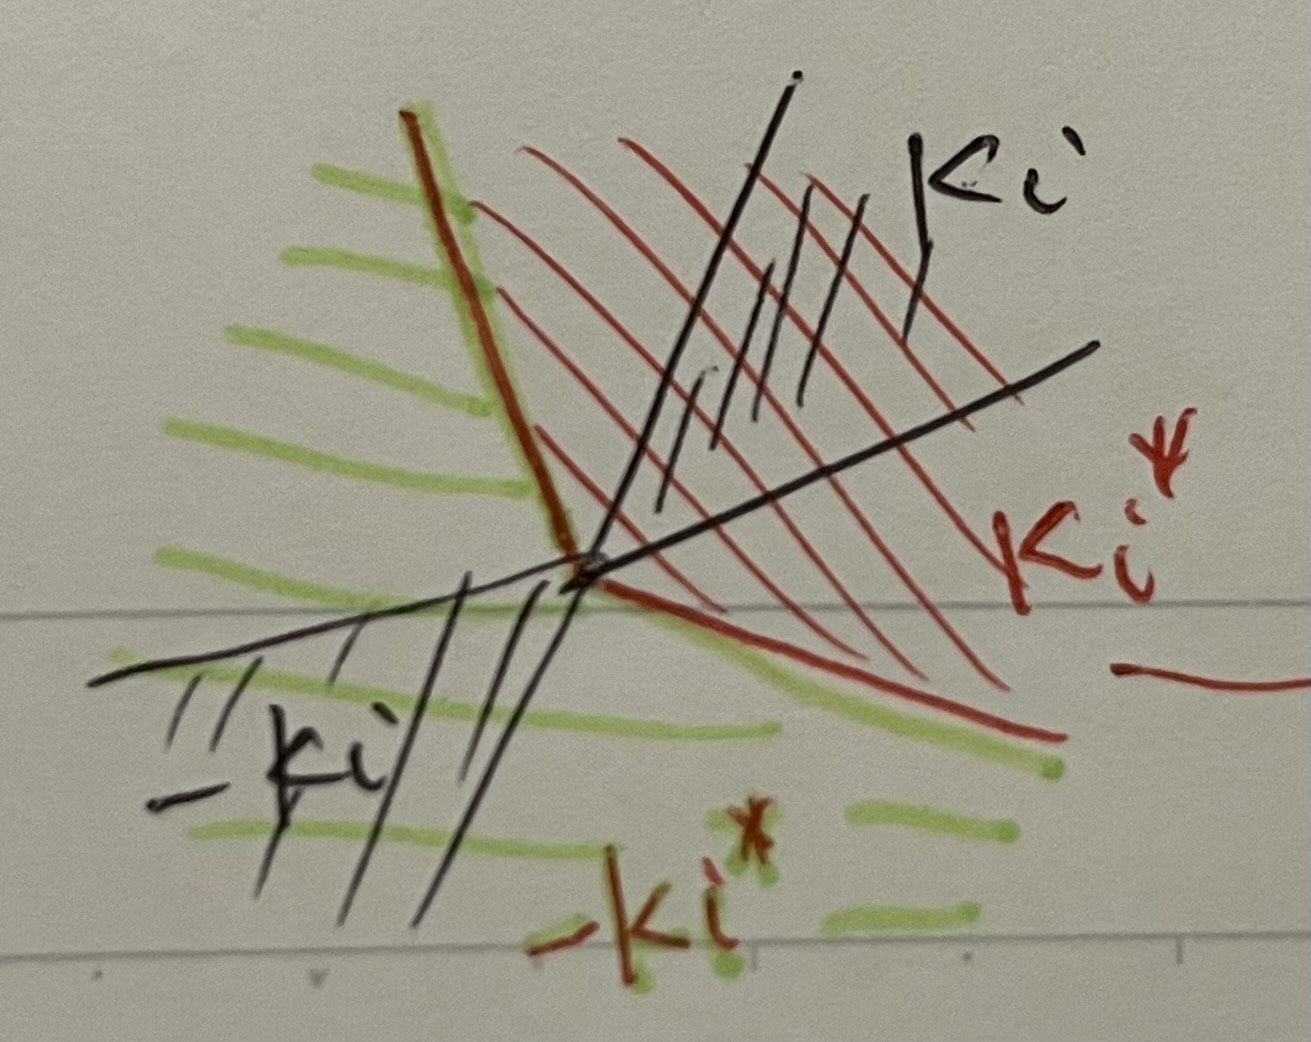 Ki
Ki*
-Ki
-Ki*